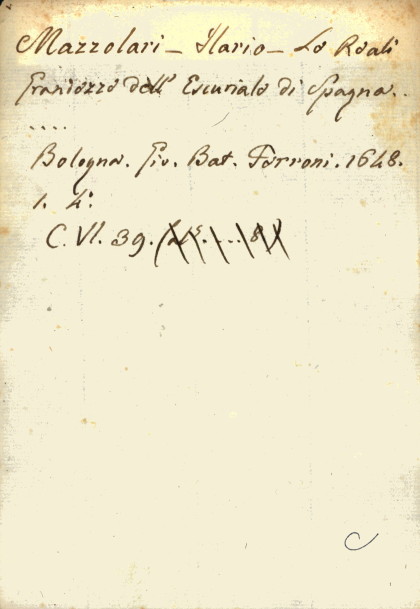 Mazzolari - Ilario - Le Reali
Grandezze dell' Escuriale di Spagna..
....
Bologna. Gio. Bat. Ferroni. 1648.
1. 4.º
C. VI. 39.
C